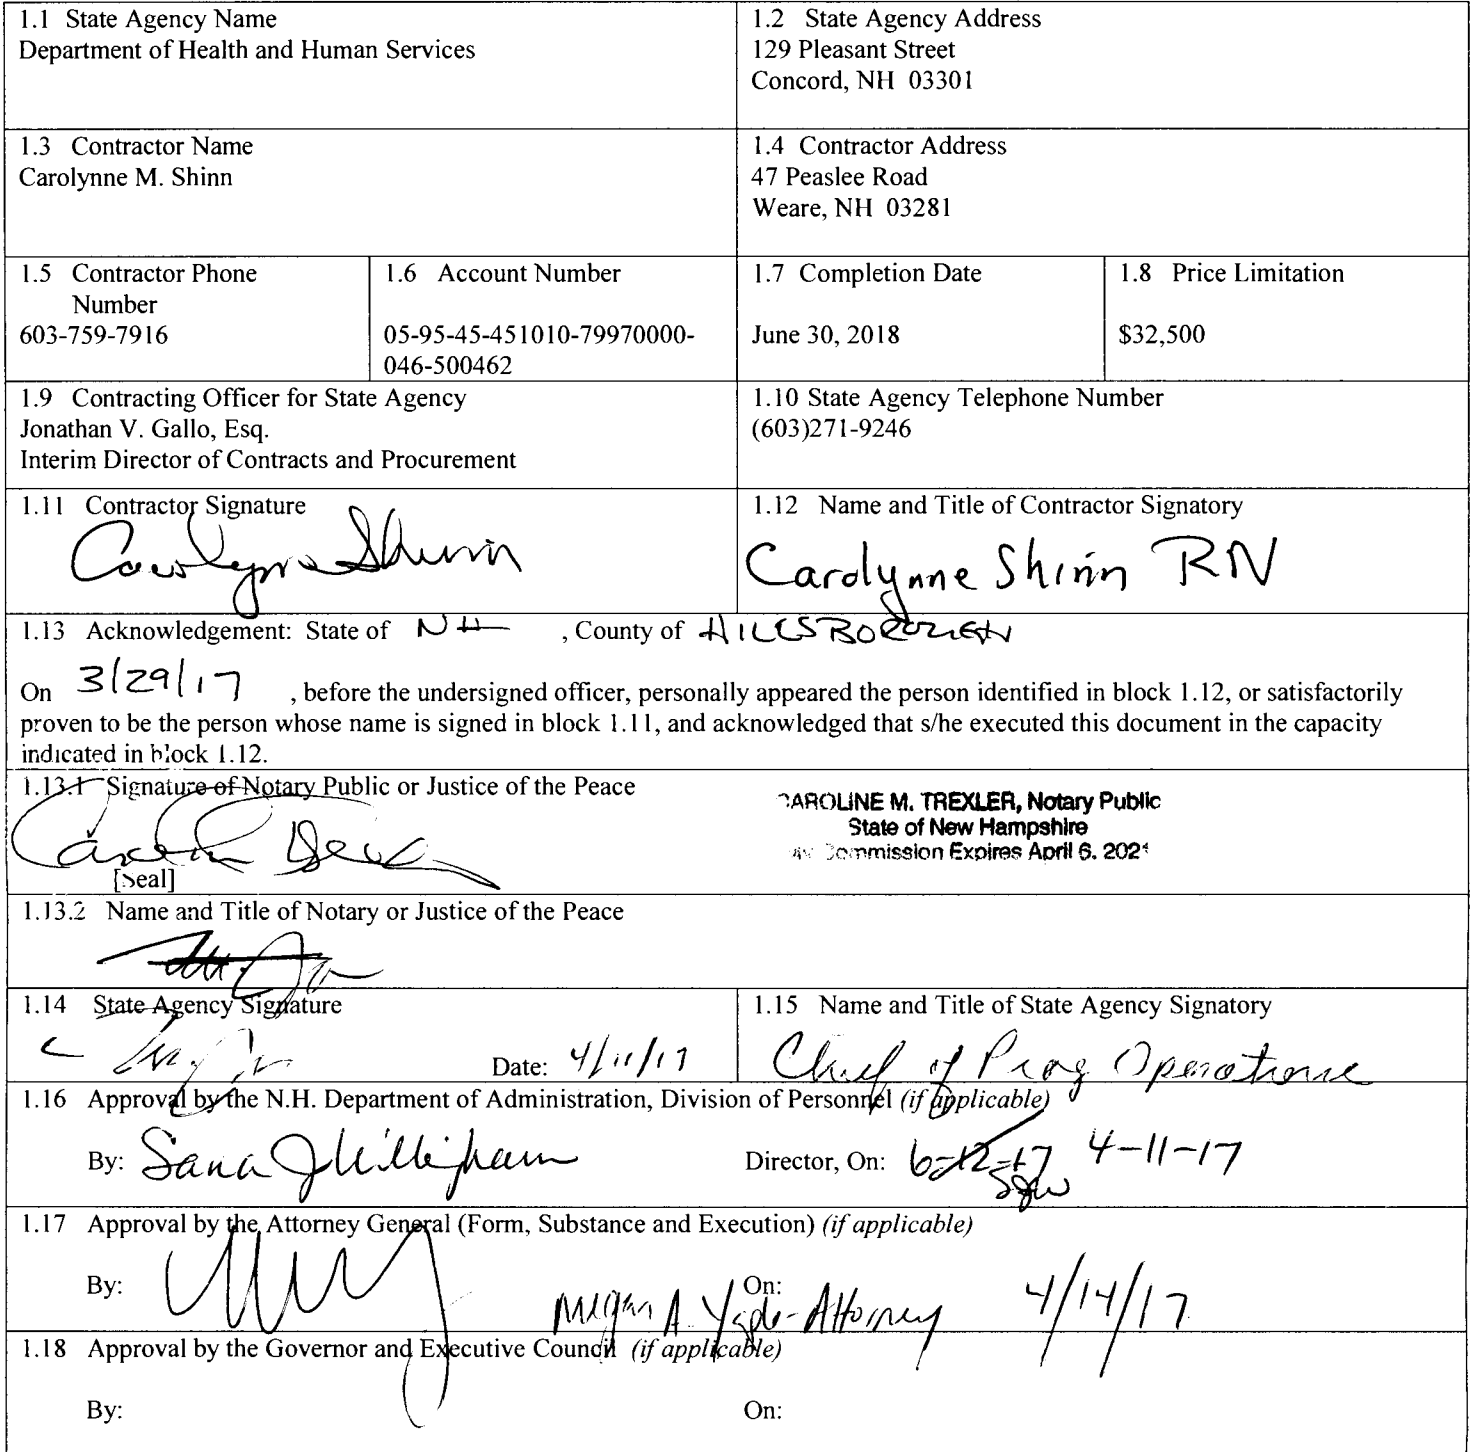 1.1 State Agency Name
Department of Health and Human Services
1.2 State Agency Address
129 Pleasant Street
Concord, NH 03301
1.3 Contractor Name
Carolynne M. Shinn
1.4 Contractor Address
47 Peaslee Road
Weare, NH 03281
1.5 Contractor Phone
Number
603-759-7916
1.6 Account Number
05-95-45-451010-79970000-
046-500462
1.7 Completion Date
June 30, 2018
1.8 Price Limitation
$32,500
1.9 Contracting Officer for State Agency
Jonathan V. Gallo, Esq.
Interim Director of Contracts and Procurement
1.10 State Agency Telephone Number
(603)271-9246
1.11 Contractor Signature
Carolynne Shinn
1.12 Name and Title of Contractor Signatory
Carolynne Shinn RN
1.13 Acknowledgement: State of NH , County of HILLSBOROUGH
On 3/29/17 , before the undersigned officer, personally appeared the person identified in block 1.12, or satisfactorily
proven to be the person whose name is signed in block 1.11, and acknowledged that s/he executed this document in the capacity
indicated in block 1.12.
1.13.1 Signature of Notary Public or Justice of the Peace
[Seal]
CAROLINE M. TREXLER, Notary Public
State of New Hampshire
My Commission Expires April 6, 2021
1.13.2 Name and Title of Notary or Justice of the Peace
1.14 State Agency Signature
Date: 4/11/17
1.15 Name and Title of State Agency Signatory
Chief of Prog Operations
1.16 Approval by the N.H. Department of Administration, Division of Personnel (if applicable)
By: Sara J Willingham
Director, On: 6-12-17 4-11-17
SJW
1.17 Approval by the Attorney General (Form, Substance and Execution) (if applicable)
By:
On:
Megan A. Yaple-Attorney 4/14/17
1.18 Approval by the Governor and Executive Council (if applicable)
By:
On: